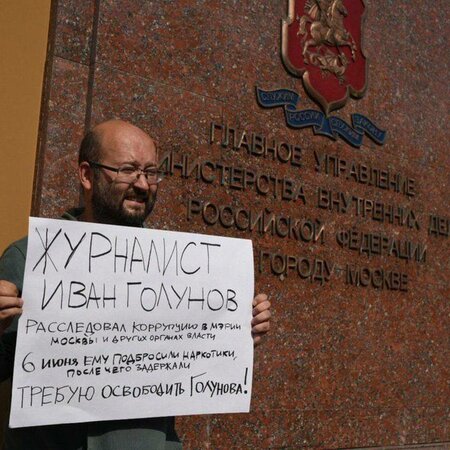 СЛУЖИМ
РОССИИ
СЛУЖИМ
ЗАКОНУ
ГЛАВНОЕ УПРАВЛЕНИЕ
МИНИСТЕРСТВА ВНУТРЕННИХ ДЕЛ
РОССИЙСКОЙ ФЕДЕРАЦИИ
ГОРОДУ МОСКВЕ
ЖУРНАЛИСТ
ИВАН ГОЛУНОВ
РАССЛЕДОВАЛ КОРРУПЦИЮ В МЭРИИ
МОСКВЫ И ДРУГИХ ОРГАНАХ ВЛАСТИ
6 ИЮНЯ ЕМУ ПОДБРОСИЛИ НАРКОТИКИ,
ПОСЛЕ ЧЕГО ЗАДЕРЖАЛИ
ТРЕБУЮ ОСВОБОДИТЬ ГОЛУНОВА!